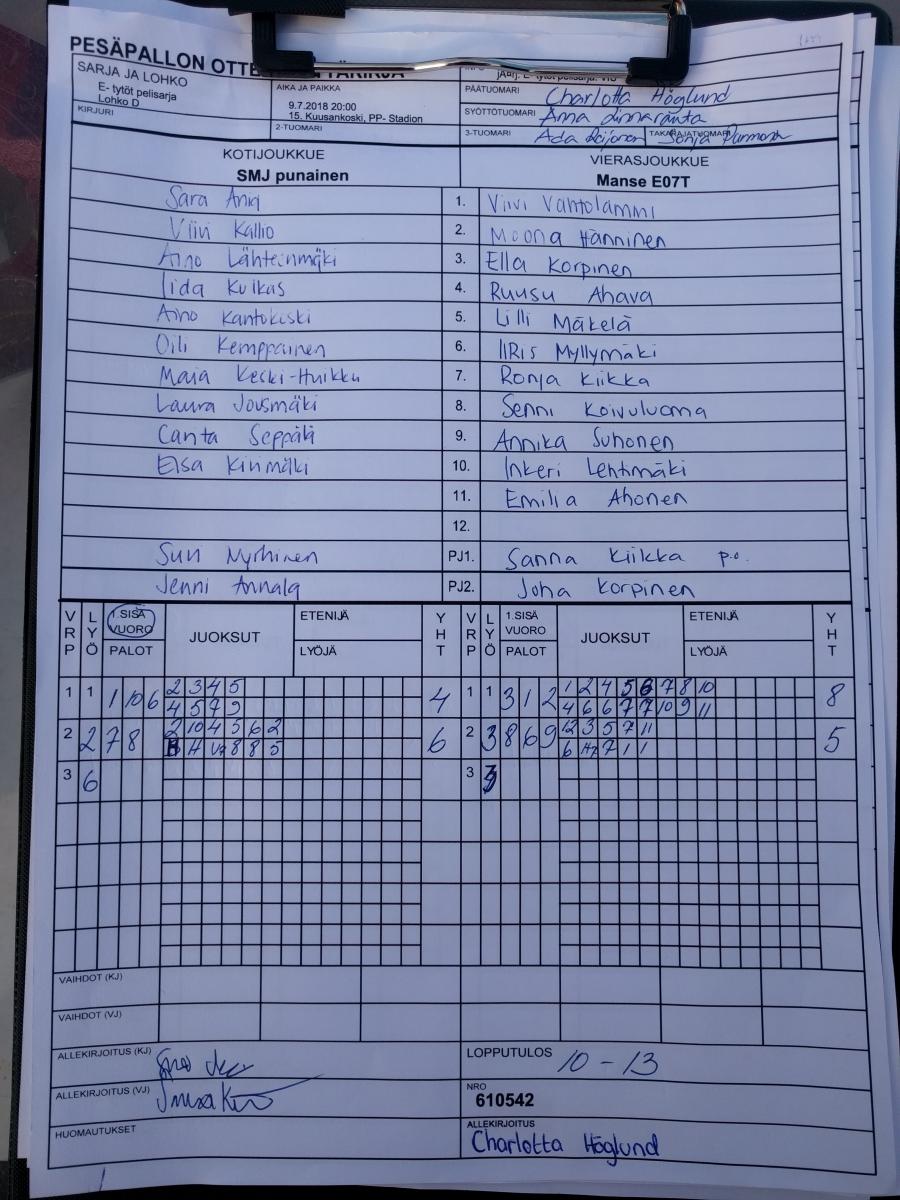 PESÄPALLON OTTE
SARJA JA LOHKO
E- tytöt pelisarja
Lohko D
KIRJURI
AIKA JA PAIKKA
9.7.2018 20:00
15. Kuusankoski, PP- Stadion
2-TUOMARI
PÄÄTUOMARI Charlotta Höglund
SYÖTTÖTUOMARI Anna Linnaranta
3-TUOMARI Ada TAKARAJATUOMARI Sonja
KOTIJOUKKUE VIERASJOUKKUE
SMJ punainen Manse E07T
Sara 1. Viivi Vahtolammi
Viivi Kallio 2. Moona Hänninen
Aino Lähteinmäki 3. Ella Korpinen
Iida Kulkas 4. Ruusu Ahava
Aino Kantokoski 5. Lilli Mäkelä
Oili Kemppainen 6. IIRis Myllymäki
Maia Keski-Huikku 7. Ronja Kiikka
Laura Jousmäki 8. Senni Koivuluoma
Canta Seppälä 9. Annika Suhonen
Elsa Kinmäki 10. Inkeri Lehtimäki
11. Emilia Ahonen
12.
Suvi Nyrhinen PJ1. Sanna Kiikka p.o.
Jenni Annala PJ2. Juha Korpinen
VRP LYÖ 1.SISÄ VUORO PALOT JUOKSUT ETENIJÄ LYÖJÄ YHT VRP LYÖ 1.SISÄ VUORO PALOT JUOKSUT ETENIJÄ LYÖJÄ YHT
1 1 1 10 6 2 3 4 5 4 1 1 3 1 2 1 2 4 5 6 7 8 10 8
4 5 7 9 4 6 6 7 7 10 9 11
2 2 7 8 2 10 4 5 6 2 6 2 3 8 6 9 12 3 5 7 11 5
H 8 8 5 6 7 1 1
3 6 3 3
VAIHDOT (KJ)
VAIHDOT (VJ)
ALLEKIRJOITUS (KJ) LOPPUTULOS 10 - 13
ALLEKIRJOITUS (VJ) NRO
610542
HUOMAUTUKSET ALLEKIRJOITUS
Charlotta Höglund